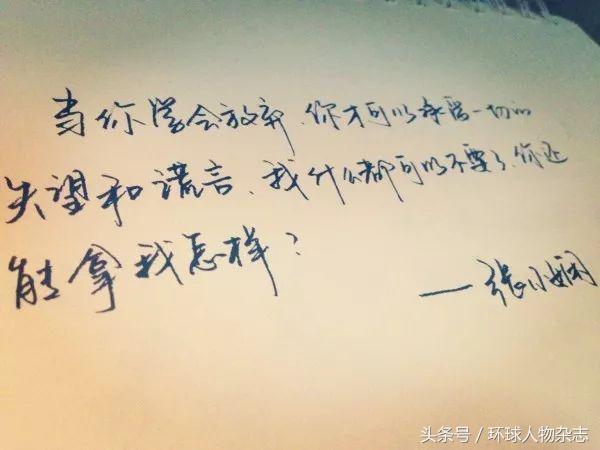 当你学会放弃、你才可以承受一切的
失望和谎言、我什么都可以不要了、你还
能拿我怎样?
——张小娴
头条号/环球人物杂志